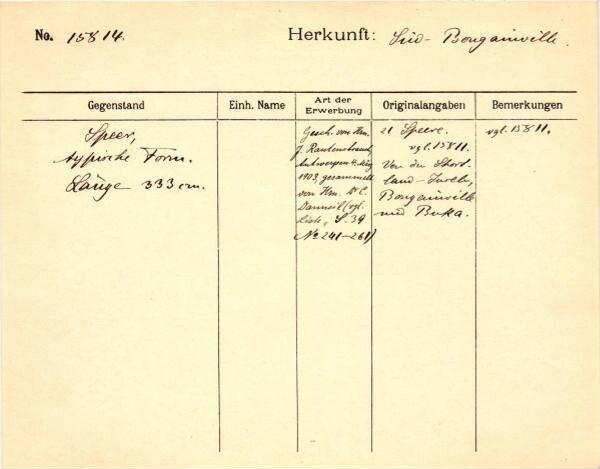 No. 15814. Herkunft: Süd-Bougainville.
Gegenstand
Einh. Name
Art der Erwerbung
Originalangaben
Bemerkungen
Speer,
typische Form.
Länge 333 cm.
Gesch. von Hrn.
J. Rautenstrauch,
Antwerpen
1903, gesammelt
von Hrn.
Danneil (vgl.
Liste, S. 39
No. 241-261)
21 Speere.
vgl. 15811.
Von den Short
land-Inseln,
Bougainville
und Buka.
vgl. 15811.